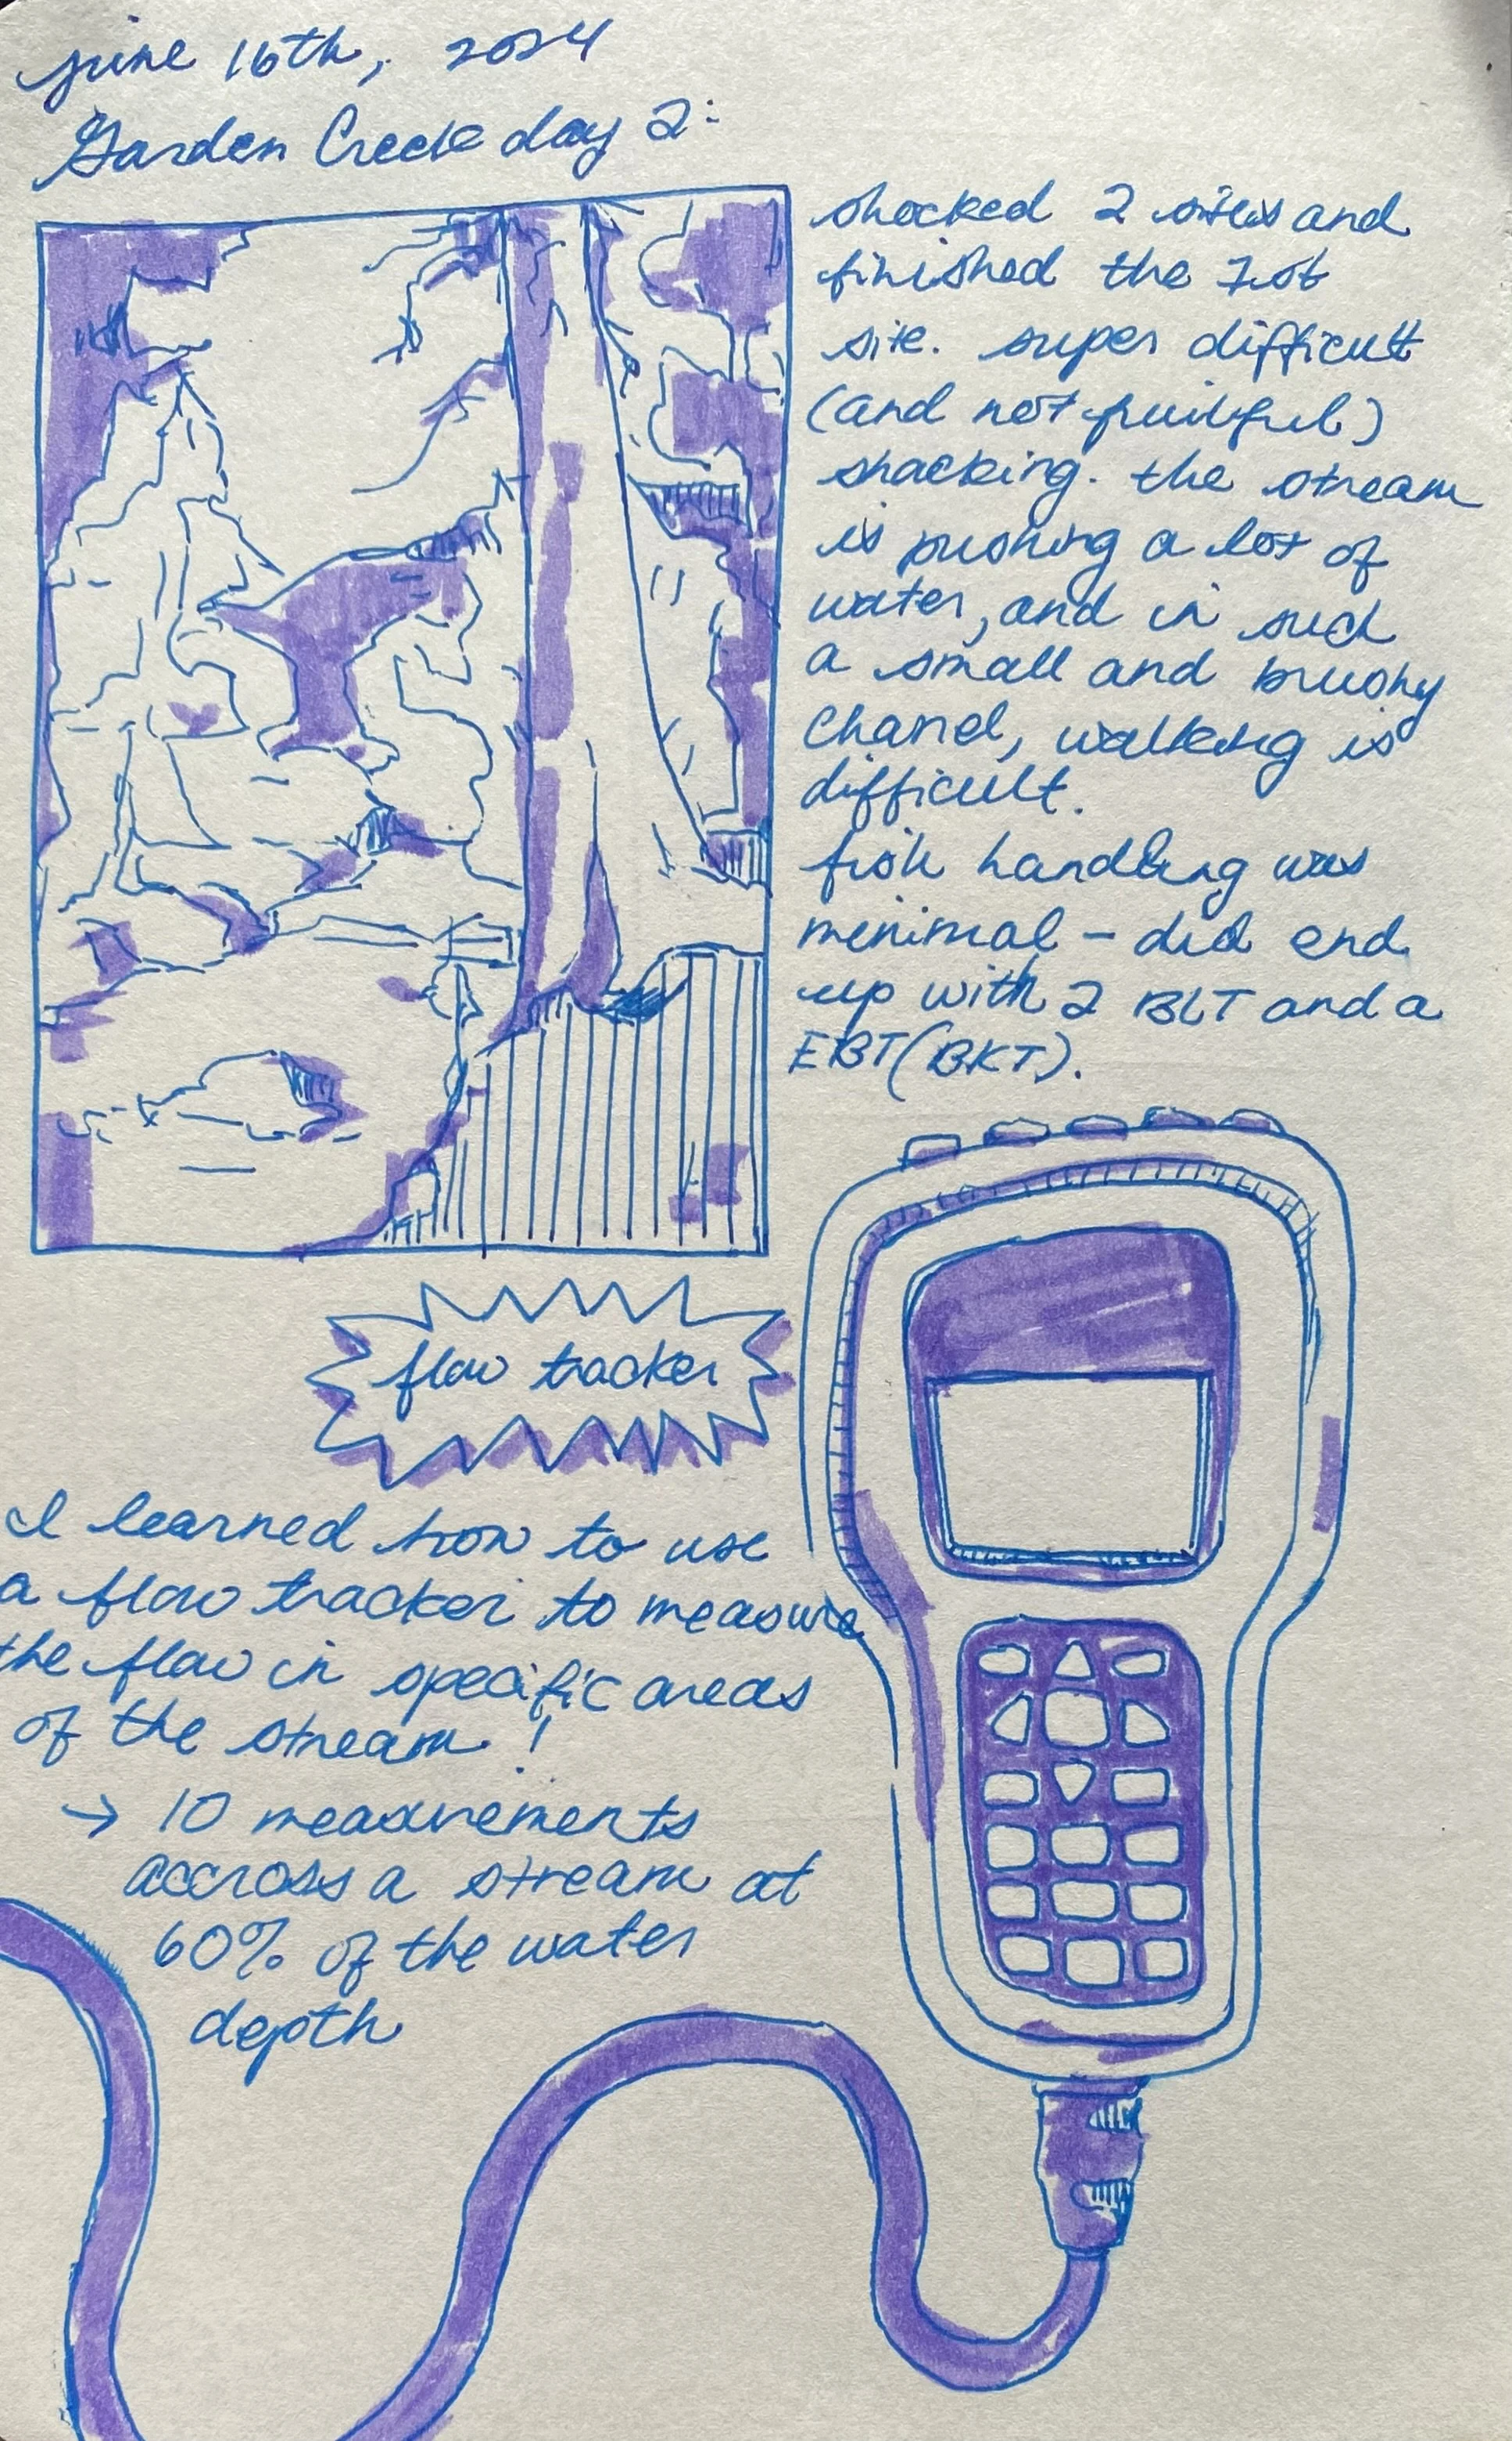 june 16th, 2024
Garden Creek day 2:
shocked 2 sites and
finished the 1st
site. super difficult
(and not fruitful)
shacking. the stream
is pushing a lot of
water, and in such
a small and brushy
chanel, walking is
difficult.
fish handling was
minimal – did end
up with 2 BLT and a
EBT(BKT).
flow tracker
I learned how to use
a flow tracker to measure
the flow in specific areas
of the stream!
→ 10 measurements
accross a stream at
60% of the water
depth